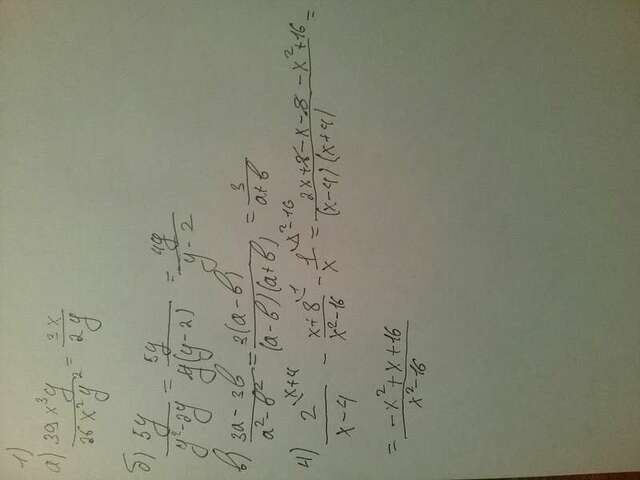 1)
а) 39x³y / 26x²y² = 3x / 2y
б) 5y / y²-2y = 5y / y(y-2) = / y-2
в) 3a-3b / a²-b² = 3(a-b) / (a-b)(a+b) = 3 / a+b
4) 2\x+4 / x-4 - x+8\1 / x²-16 - 1\x²-16 / x = 2x+8-x-8-x²+16 / (x-4)(x+4) =
= -x²+x+16 / x²-16